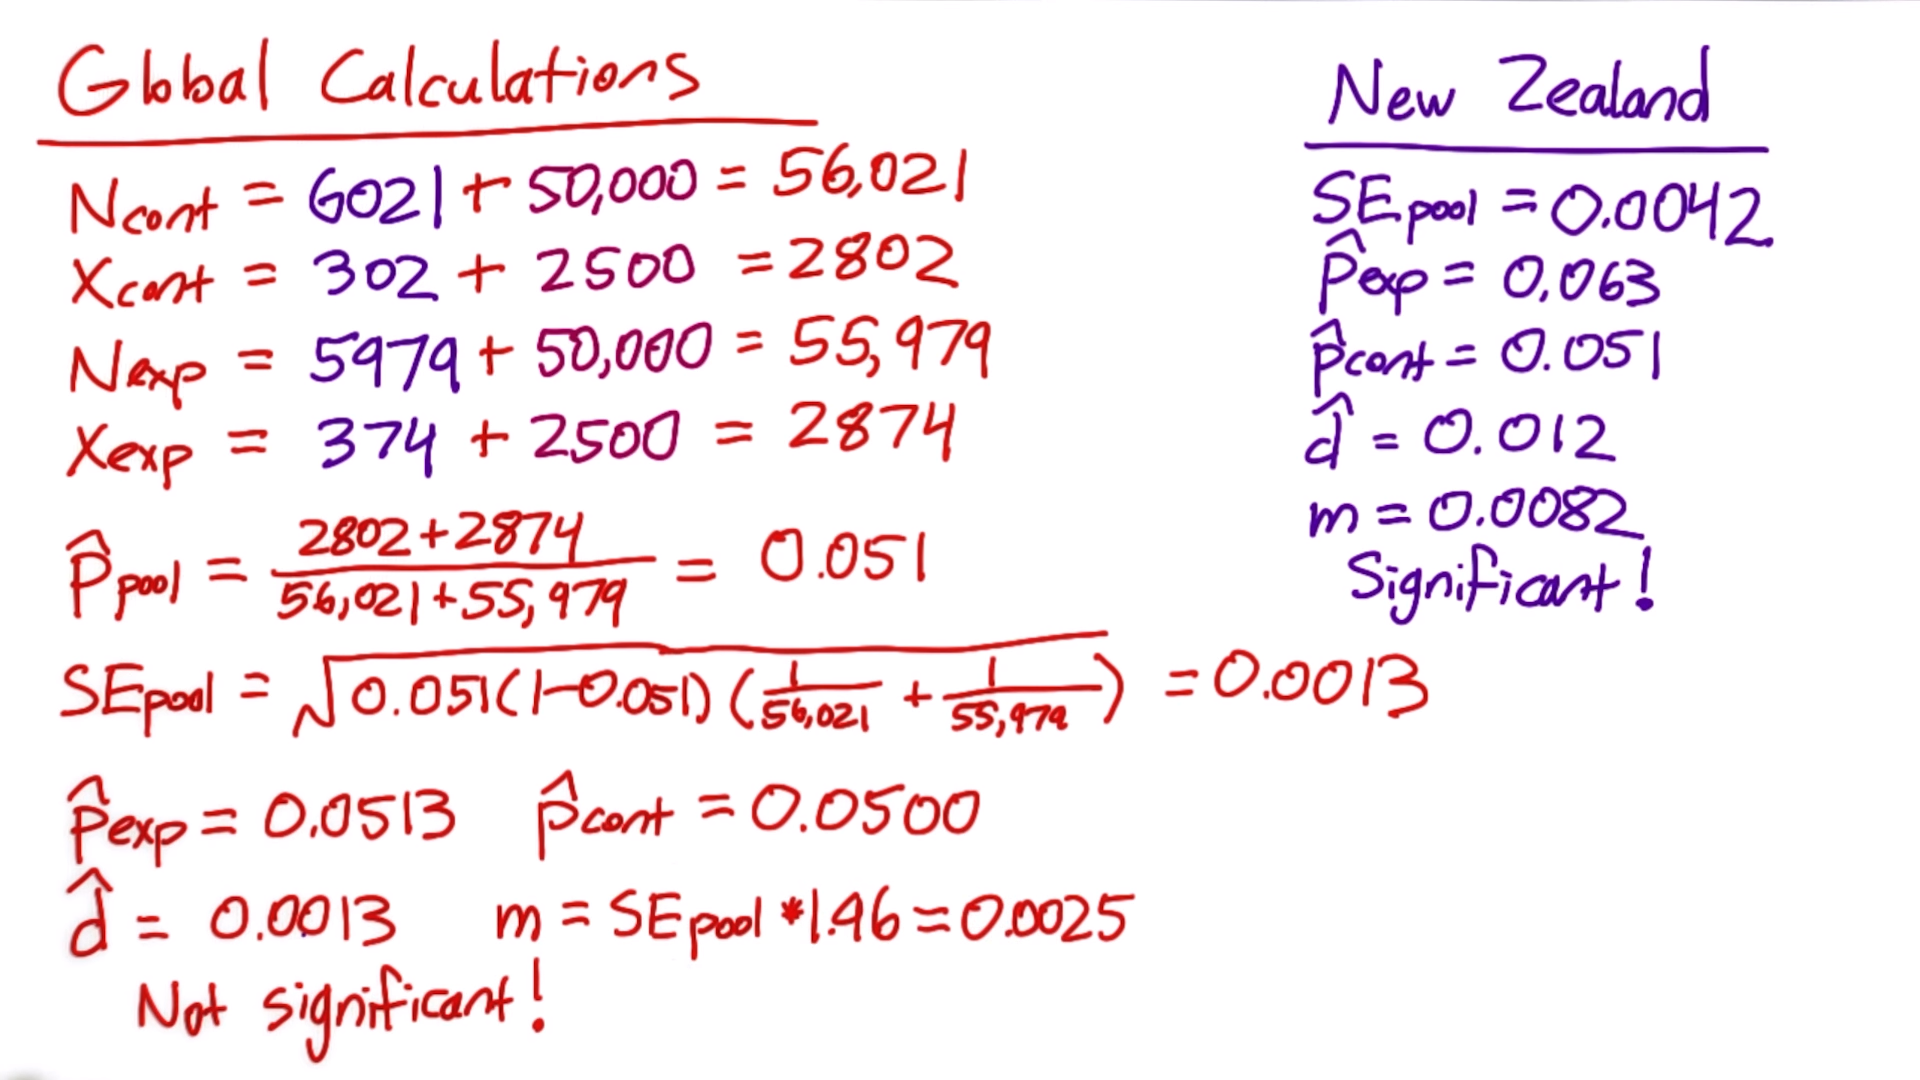 Global Calculations
Ncont = 6021 + 50,000 = 56,021
Xcont = 302 + 2500 = 2802
Nexp = 5979 + 50,000 = 55,979
Xexp = 374 + 2500 = 2874
p̂pool = (2802+2874)/(56,021+55,979) = 0.051
SEpool = √0.051(1-0.051)(1/56,021 + 1/55,979) = 0.0013
p̂exp = 0.0513 p̂cont = 0.0500
d̂ = 0.0013 m = SEpool *1.96 = 0.0025
Not significant!
New Zealand
SEpool = 0.0042
p̂exp = 0.063
p̂cont = 0.051
d̂ = 0.012
m = 0.0082
Significant!